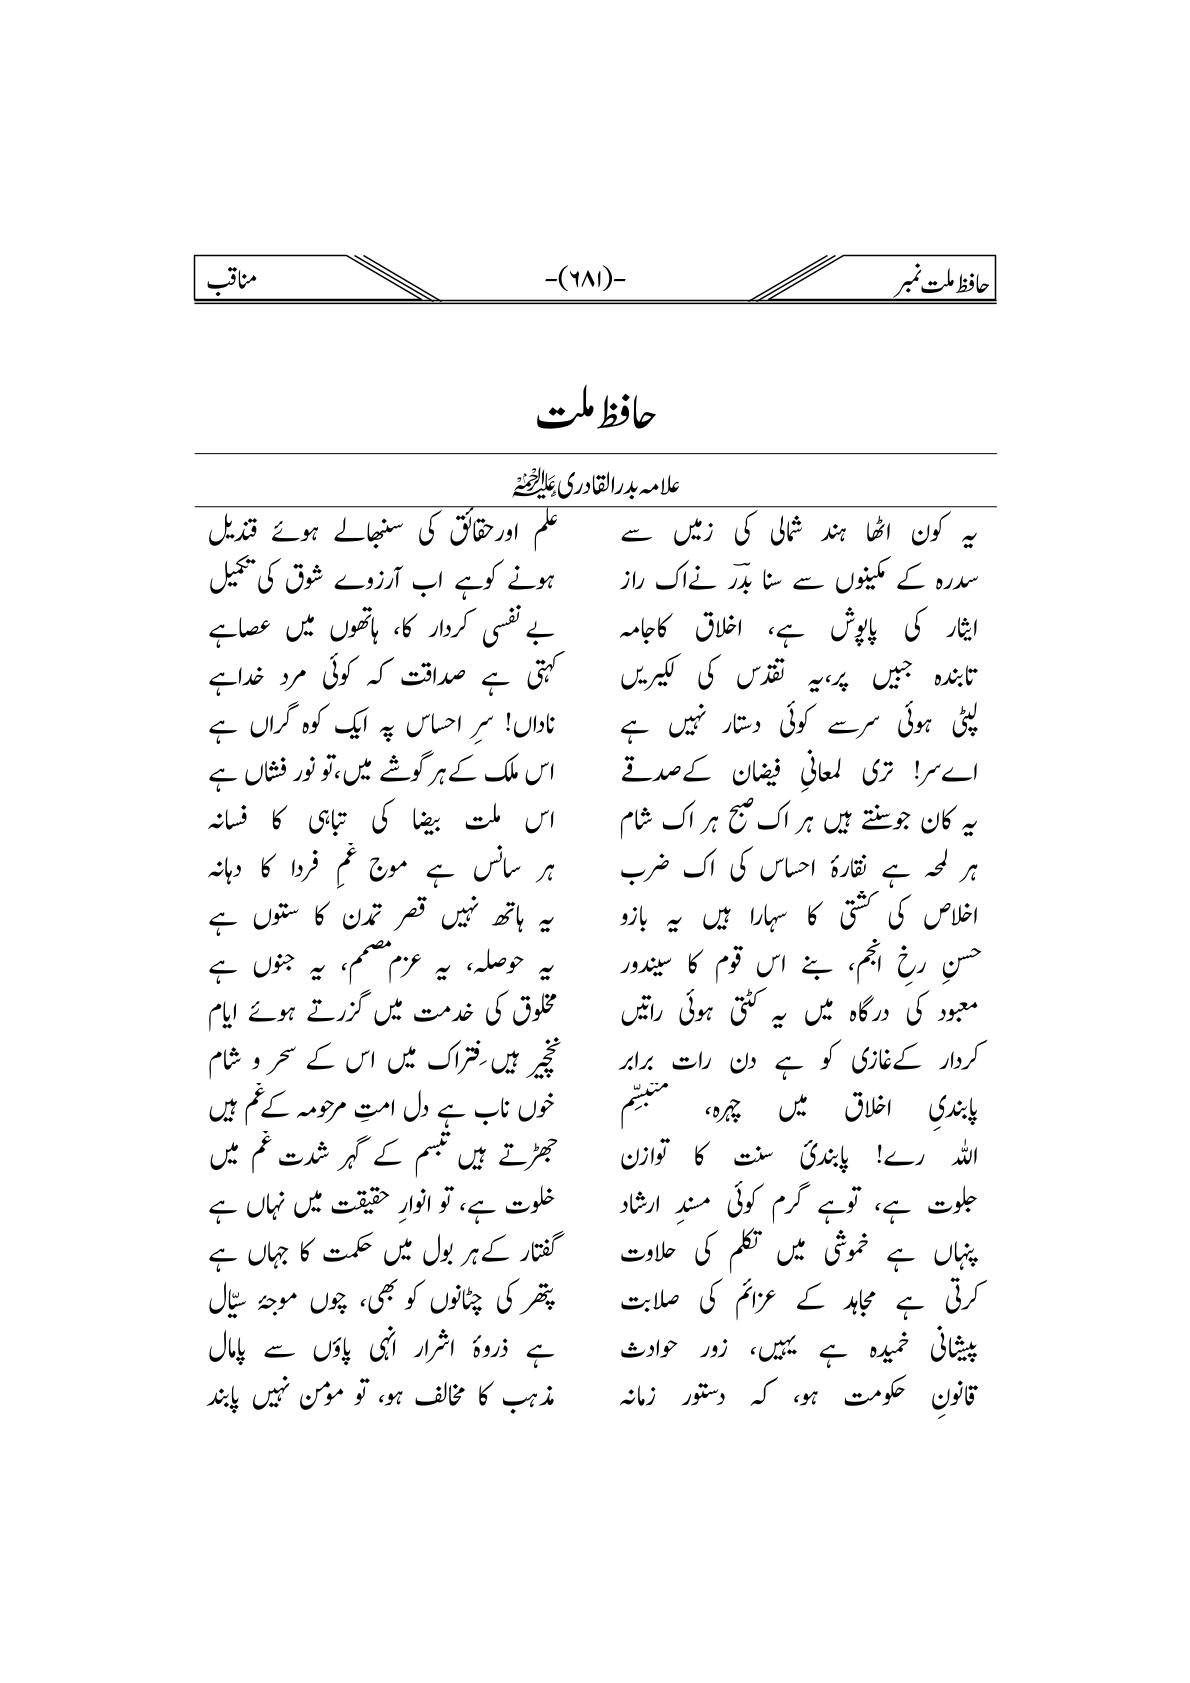 حافظ ملت نمبر -(۶۸۱)- مناقب
حافظ ملت
علامہ بدرالقادری علیہ الرحمہ
یہ کون اٹھا ہند شمالی کی زمیں سے علم اور حقائق کی سنبھالے ہوئے قندیل
سدرہ کے مکینوں سے سنا بدؔر نے اک راز ہونے کو ہے اب آرزوے شوق کی تکمیل
ایثار کی پاپوش ہے، اخلاق کا جامہ بے نفسی کردار کا، ہاتھوں میں عصا ہے
تابندہ جبیں پر، یہ تقدّس کی لکیریں کہتی ہے صداقت کہ کوئی مرد خدا ہے
لپٹی ہوئی سر سے کوئی دستار نہیں ہے ناداں! سرِ احساس پہ ایک کوہ گراں ہے
اے سر! تری لمعانیِ فیضان کے صدقے اس ملک کے ہر گوشے میں، تو نور فشاں ہے
یہ کان جو سنتے ہیں ہر اک صبح ہر اک شام اس ملت بیضا کی تباہی کا فسانہ
ہر لمحہ ہے نقارۂ احساس کی اک ضرب ہر سانس ہے موج غمِ فردا کا دہانہ
اخلاص کی کشتی کا سہارا ہیں یہ بازو یہ ہاتھ نہیں قصر تمدن کا ستوں ہے
حسنِ رخِ انجم، بنے اس قوم کا سیندور یہ حوصلہ، یہ عزم مصمم، یہ جنوں ہے
معبود کی درگاہ میں یہ کٹتی ہوئی راتیں مخلوق کی خدمت میں گزرتے ہوئے ایام
کردار کے غازی کو ہے دن رات برابر نخچیر ہیں فتراک میں اس کے سحر و شام
پابندیِ اخلاق میں چہرہ، متبسِّم خوں ناب ہے دل امتِ مرحومہ کے غم میں
اللہ رے! پابندیٔ سنت کا توازن جھڑتے ہیں تبسم کے گہر شدت غم میں
جلوت ہے، تو ہے گرم کوئی مسندِ ارشاد خلوت ہے، تو انوارِ حقیقت میں نہاں ہے
پنہاں ہے خموشی میں تکلم کی حلاوت گفتار کے ہر بول میں حکمت کا جہاں ہے
کرتی ہے مجاہد کے عزائم کی صلابت پتھر کی چٹانوں کو بھی، چوں موجۂ سیّال
پیشانی خمیدہ ہے یہیں، زور حوادث ہے ذروۂ اشرار انہی پاؤں سے پامال
قانونِ حکومت ہو، کہ دستور زمانہ مذہب کا مخالف ہو، تو مؤمن نہیں پابند